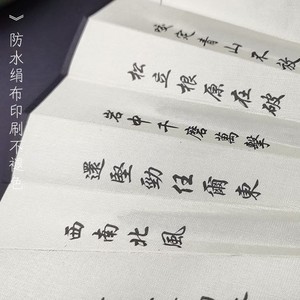 防水绢布印刷不褪色
咬定青山不放
松立根原在破
岩中千磨萬擊
還堅勁任爾東
西南北風